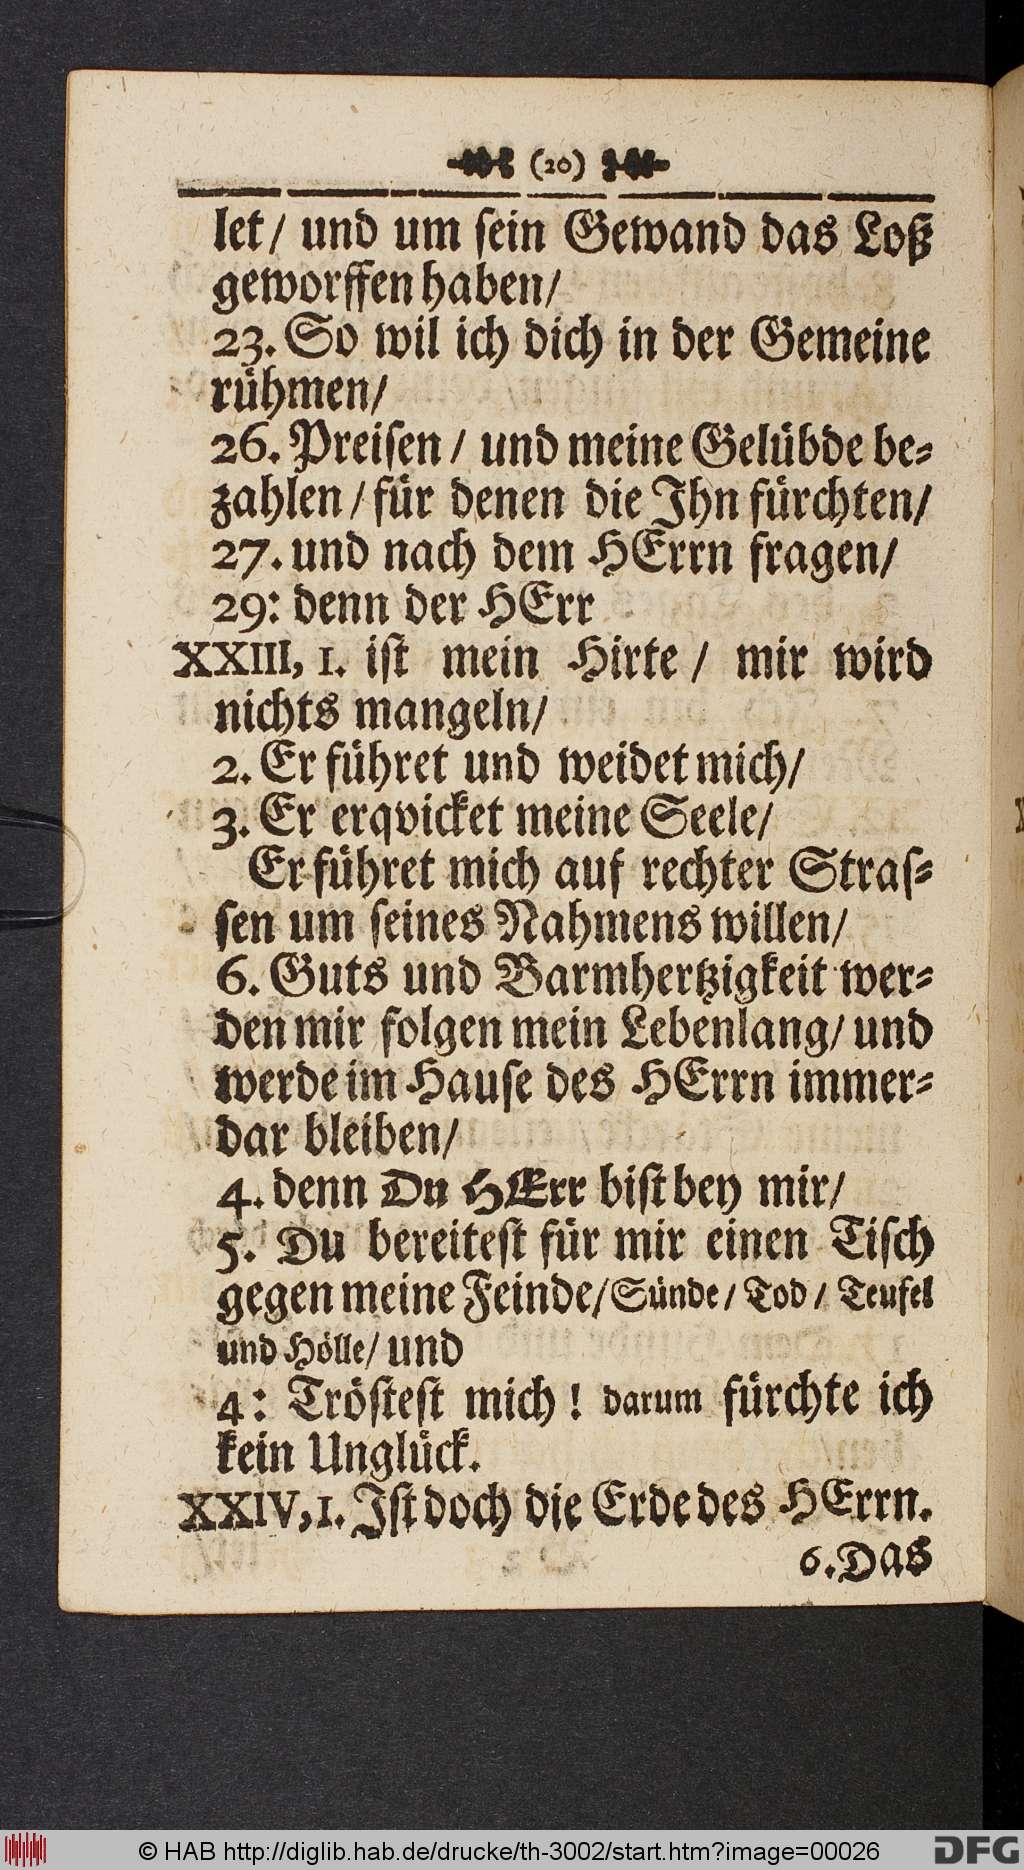 (20)
let/ und um sein Gewand das Loß
geworffen haben/
23. So wil ich dich in der Gemeine
rühmen/
26. Preisen / und meine Gelübde be-
zahlen / für denen die Ihn fürchten/
27. und nach dem HErrn fragen/
29: denn der HErr
XXIII, 1. ist mein Hirte / mir wird
nichts mangeln/
2. Er führet und weidet mich/
3. Er erqvicket meine Seele/
Er führet mich auf rechter Stras-
sen um seines Nahmens willen/
6. Guts und Barmhertzigkeit wer-
den mir folgen mein Lebenlang/ und
werde im Hause des HErrn immer-
dar bleiben/
4. denn Du HErr bist bey mir/
5. Du bereitest für mir einen Tisch
gegen meine Feinde/ Sünde / Tod / Teufel
und Hölle/ und
4: Tröstest mich ! darum fürchte ich
kein Unglück.
XXIV, 1. Ist doch die Erde des HErrn.
6. Das
© HAB http://diglib.hab.de/drucke/th-3002/start.htm?image=00026
DFG